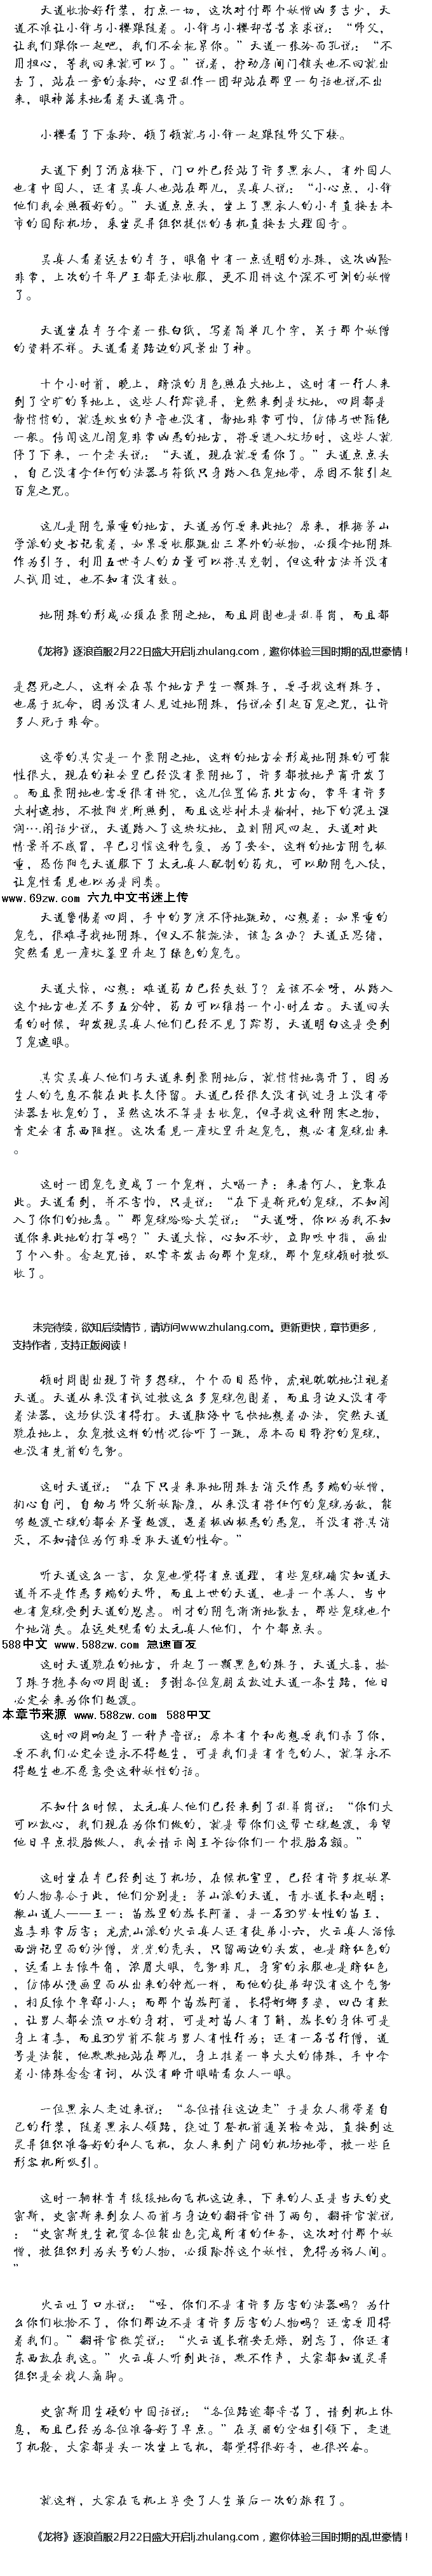 天道收拾好行装，打点一切，这次对付那个妖僧凶多吉少，天
道不准让小锋与小樱跟随着。小锋与小樱却苦苦哀求说：“师父，
让我们跟你一起吧，我们不会拖累你。”天道一张冷面孔说：“不
用担心，等我回来就可以了。”说着，拧动房间门锁头也不回就出
去了，站在一旁的春玲，心里乱作一团却站在那里一句话也说不出
来，眼神落末地看着天道离开。
小樱看了下春玲，顿了顿就与小锋一起跟随师父下楼。
天道下到了酒店楼下，门口外已经站了许多黑衣人，有外国人
也有中国人，还有吴真人也站在那儿，吴真人说：“小心点，小锋
他们我会照顾好的。”天道点点头，坐上了黑衣人的小车直接去本
市的国际机场，乘坐灵异组织提供的专机直接去大理国寺。
吴真人看着远去的车子，眼角中有一点透明的水珠，这次凶险
非常，上次的千年尸王都无法收服，更不用讲这个深不可测的妖僧
了。
天道坐在车子拿着一张白纸，写着简单几个字，关于那个妖僧
的资料不祥。天道看着路边的风景出了神。
十个小时前，晚上，暗淡的月色照在大地上，这时有一行人来
到了空旷的草地上，这些人行踪诡异，竟然来到是坟地，四周都是
静悄悄的，就连蚊虫的声音也没有，静地非常可怕，仿佛与世隔绝
一般。传闻这儿闹鬼非常凶恶的地方，将要进入坟场时，这些人就
停了下来，一个老头说：“天道，现在就要看你了。”天道点点头
，自己没有拿任何的法器与符纸只身踏入狂鬼地带，原因不能引起
百鬼之咒。
这儿是阴气最重的地方，天道为何要来此地？原来，根据茅山
学派的史书记载着，如果要收服跳出三界外的妖物，必须拿地阴珠
作为引子，利用五世奇人的力量可以将其克制，但这种方法并没有
人试用过，也不知有没有效。
地阴珠的形成必须在聚阴之地，而且周围也是乱葬岗，而且都
《龙将》逐浪首服2月22日盛大开启lj.zhulang.com，邀你体验三国时期的乱世豪情！
是怨死之人，这样会在某个地方产生一颗珠子，要寻找这样珠子，
也属于玩命，因为没有人见过地阴珠，传说会引起百鬼之咒，让许
多人死于非命。
这带的其实是一个聚阴之地，这样的地方会形成地阴珠的可能
性很大，现在的社会里已经没有聚阴地了，许多都被地产商开发了
。而且聚阴地也需要很有讲究，这儿位置偏东北方向，常年有许多
大树遮挡，不被阳光所照到，而且这些树木是榆树，地下的泥土湿
润…闲话少说，天道踏入了这块坟地，立刻阴风四起，天道对此
情景并不感冒，早已习惯这种气氛，为了安全，这样的地方阴气极
重，恐伤阳气天道服下了太元真人配制的药丸，可以助阴气入侵，
让鬼怪看见也以为是同类。
www.69zw.com 六九中文书迷上传
天道警惕着四周，手中的罗庚不停地跳动，心想着：如果重的
鬼气，很难寻找地阴珠，但又不能施法，该怎么办？天道正思绪，
突然看见一座坟墓里升起了绿色的鬼气。
天道大惊，心想：难道药力已经失效了？应该不会呀，从踏入
这个地方也差不多五分钟，药力可以维持一个小时左右。天道回头
看的时候，却发现吴真人他们已经不见了踪影，天道明白这是受到
了鬼遮眼。
其实吴真人他们与天道来到聚阴地后，就悄悄地离开了，因为
生人的气息不能在此长久停留。天道已经很久没有试过身上没有带
法器去收鬼的了，虽然这次不算是去收鬼，但寻找这种阴寒之物，
肯定会有东西阻拦。这次看见一座坟里升起鬼气，想必有鬼魂出来
。
这时一团鬼气变成了一个鬼样，大喝一声：来者何人，竟敢在
此。天道看到，并不害怕，只是说：“在下是新死的鬼魂，不知闯
入了你们的地盘。”那鬼魂哈哈大笑说：“天道呀，你以为我不知
道你来此地的打算吗？”天道大惊，心知不妙，立即咬中指，画出
了个八卦。念起咒语，双掌齐发击向那个鬼魂，那个鬼魂顿时被吸
收了。
未完待续，欲知后续情节，请访问www.zhulang.com。更新更快，章节更多，
支持作者，支持正版阅读！
顿时周围出现了许多怨魂，个个面目恐怖，虎视眈眈地注视着
天道。天道从来没有试过被这么多鬼魂包围着，而且身边又没有带
着法器，这场仗没有得打。天道脑海中飞快地想着办法，突然天道
跪在地上，众鬼被这样的情况给吓了一跳，原本面目狰狞的鬼魂，
也没有先前的气势。
这时天道说：“在下只是来取地阴珠去消灭作恶多端的妖僧，
扪心自问，自幼与师父斩妖除魔，从来没有将任何的鬼魂为敌，能
够超渡亡魂的都会尽量超渡，遇着极凶极恶的恶鬼，并没有将其消
灭，不知诸位为何非要取天道的性命。”
听天道这么一言，众鬼也觉得有点道理，有些鬼魂确实知道天
道并不是作恶多端的天师，而且上世的天道，也是一个善人，当中
也有鬼魂受到天道的恩惠。刚才的阴气渐渐地散去，那些鬼魂也个
个地消失。在远处观看的太元真人他们，个个都点头。
588中文 www.588zw.com 急速首发
这时天道跪在的地方，升起了一颗黑色的珠子，天道大喜，捡
了珠子抱拳向四周围道：多谢各位鬼朋友放过天道一条生路，他日
必定会来为你们超渡。
本章节来源 www.588zw.com 588中文
这时四周响起了一种声音说：原本有个和尚想要我们杀了你，
要不我们必定会造永不得超生，可是我们是有骨气的人，就算永不
得超生也不愿意受这种妖怪的话。
不知什么时候，太元真人他们已经来到了乱葬岗说：“你们大
可以放心，我们现在为你们做的，就是帮你们这帮亡魂超渡，希望
他日早点投胎做人，我会请示阎王爷给你们一个投胎名额。”
这时坐在车已经到达了机场，在候机室里，已经有许多捉妖界
的人物集合于此，他们分别是：茅山派的天道，青水道长和赵明；
搬山道人——王一；苗族里的族长阿萧，是一名30岁女性的苗王，
蛊毒非常厉害；龙虎山派的火云真人还有徒弟小六，火云真人活像
西游记里面的沙僧，光光的秃头，只留两边的头发，也是暗红色的
，远看上去像牛角，浓眉大眼，气势非凡，身穿的衣服也是暗红色，
仿佛从漫画里面从出来的钟馗一样，而他的徒弟却没有这个气势
，相反像个卑鄙小人；而那个苗族阿萧，长得婀娜多姿，凹凸有致
，让男人都会流口水的身材，可是对苗人有了解，族长的身体可是
身上有毒，而且30岁前不能与男人有性行为；还有一名苦行僧，道
号是法能，他默默地站在那儿，身上挂着一串大大的佛珠，手中拿
着小佛珠念念有词，从没有睁开眼睛看众人一眼。
一位黑衣人走过来说：“各位请往这边走”于是众人携带着自
己的行装，随着黑衣人领路，绕过了登机前通关检查站，直接到达
灵异组织准备好的私人飞机，众人来到广阔的机场地带，被一些巨
形客机所吸引。
这时一辆林肯车缓缓地向飞机这边来，下来的人正是当天的史
密斯，史密斯来到众人面前与身边的翻译官讲了两句，翻译官就说
：“史密斯先生祝贺各位能出色完成所有的任务，这次对付那个妖
僧，被组织列为头号的人物，必须除掉这个妖怪，免得为祸人间。
”
火云吐了口水说：“呸，你们不是有许多厉害的法器吗？为什
么你们收拾不了，你们那边不是有许多厉害的人物吗？还需要用得
着我们。”翻译官微笑说：“火云道长稍安无燥，别忘了，你还有
东西放在我这。”火云真人听到此话，默不作声，大家都知道灵异
组织是会找人痛脚。
史密斯用生硬的中国话说：“各位路途都辛苦了，请到机上休
息，而且已经为各位准备好了早点。”在美丽的空姐引领下，走进
了机舱，大家都是头一次坐上飞机，都觉得很好奇，也很兴奋。
就这样，大家在飞机上享受了人生最后一次的旅程了。
《龙将》逐浪首服2月22日盛大开启lj.zhulang.com，邀你体验三国时期的乱世豪情！